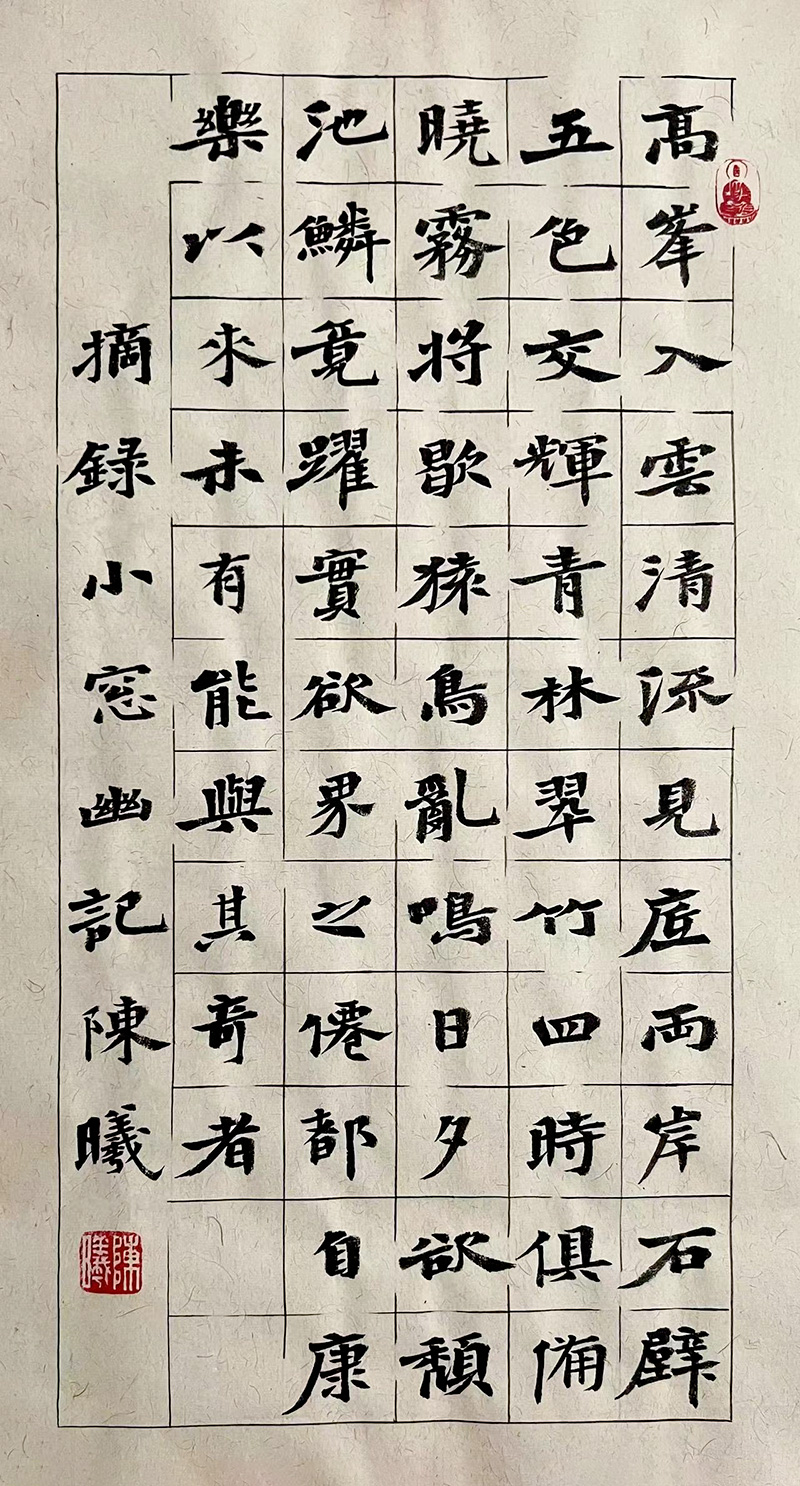 高峯入雲清流見底両岸石壁
五色交輝青林翠竹四時俱備
曉霧將歇猿鳥亂鳴日夕欲頹
池鱗竟躍實欲界之僊都自康
樂以來未有能與其奇者
摘錄小窓幽記陳曦
陳曦